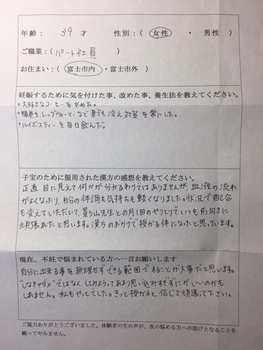 年齢： 39 才 性別：（ 女性 ・ 男性 ）
ご職業：（ パート社員 ）
お住まい：（ 富士市内 ・ 富士市外 ）
妊娠するために気を付けた事、改めた事、養生法を教えてください。
・大好きなコーヒーをやめた。
・腹巻き、レッグウォーマーなど夏も冷え対策を常にした。
・ルイボスティーを毎日飲んだ。
子宝のために服用された漢方の感想を教えてください。
正直 目に見えて何かが分かるわけではありませんが、血液の流れ
がよくなり、自分の体調も気持ちも軽くなりました。状況で配合
も変えていただいて、喜多山先生との月1回のやりとりでいつも前向きに
頑張れたと思います。漢方のおかげで授かる体になったと思っています。
現在、不妊で悩まれている方へ一言お願いします
自分に出来る事を無理せずできる範囲ですることが大事だと思います。
「しなきゃダメ」ではなく、「してみよう」であまり思い込みすぎずにがいいのかも
しれません。私もやってこれた。きっと授かると信じて頑張って下さい。
ご協力ありがとうございました。体験者の生の声が、次の悩める方への助けとなることを
願っております。